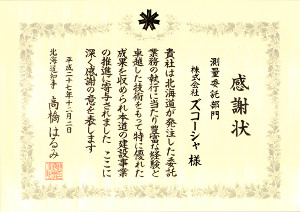 感謝状
測量委託部門
株式会社 ズコーシャ 様
貴社は北海道が発注した委託
業務の執行に当たり豊富な経験と
卓越した技術をもって特に優れた
成果を収められ本道の建設事業
の推進に寄与されました ここに
深く感謝の意を表します
平成二十七年十一月二日
北海道知事 高橋はるみ